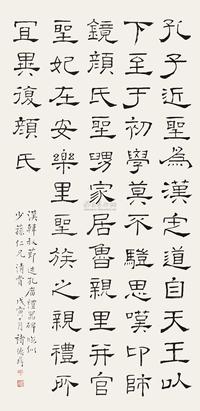 孔子近聖為漢定道自天王以
下至于初學莫不驥思嘆卬師
鏡顏氏聖舅家居魯親里并官
聖妃在安樂里聖族之親禮所
冝異復顏氏
漢韓敕節造孔廟禮器碑臨似
少蓀仁兄清賞 戊寅月褚德彝